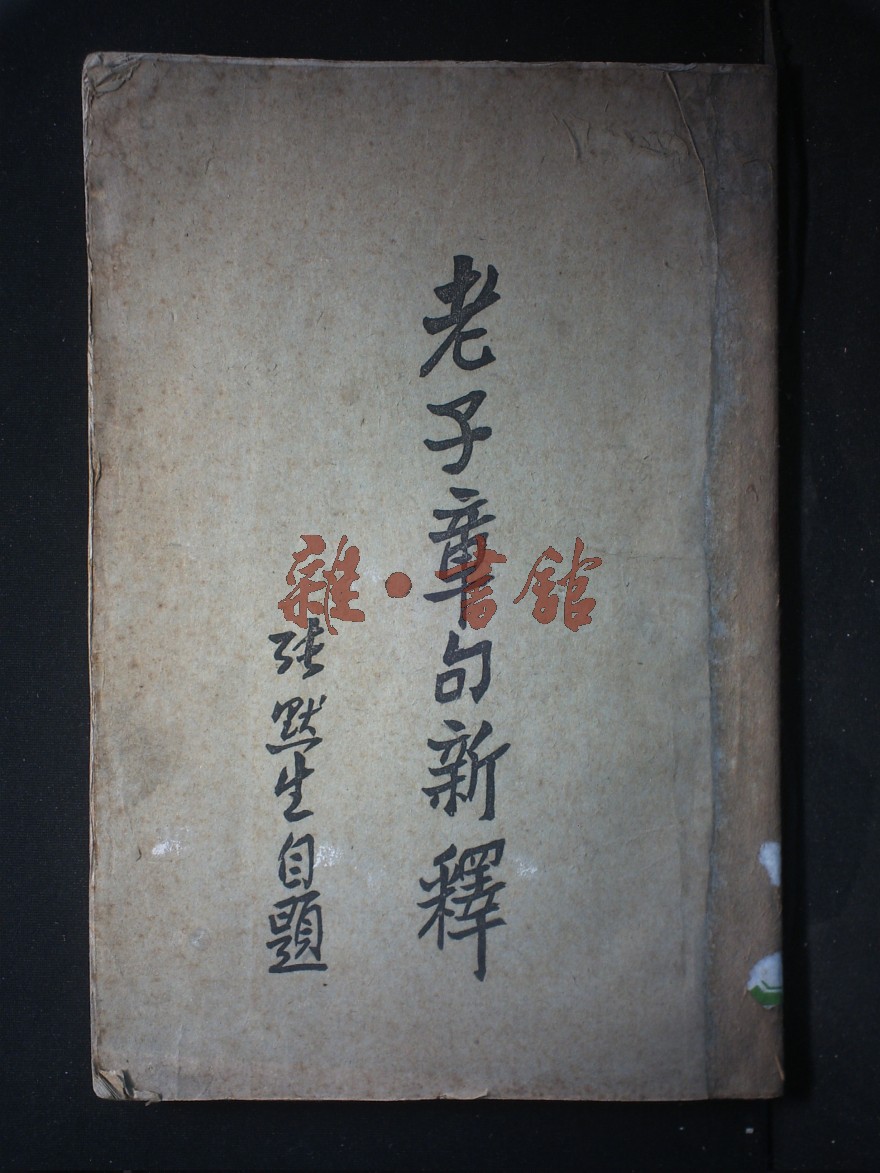 老子章句新釋
張默生自題
雜·書館